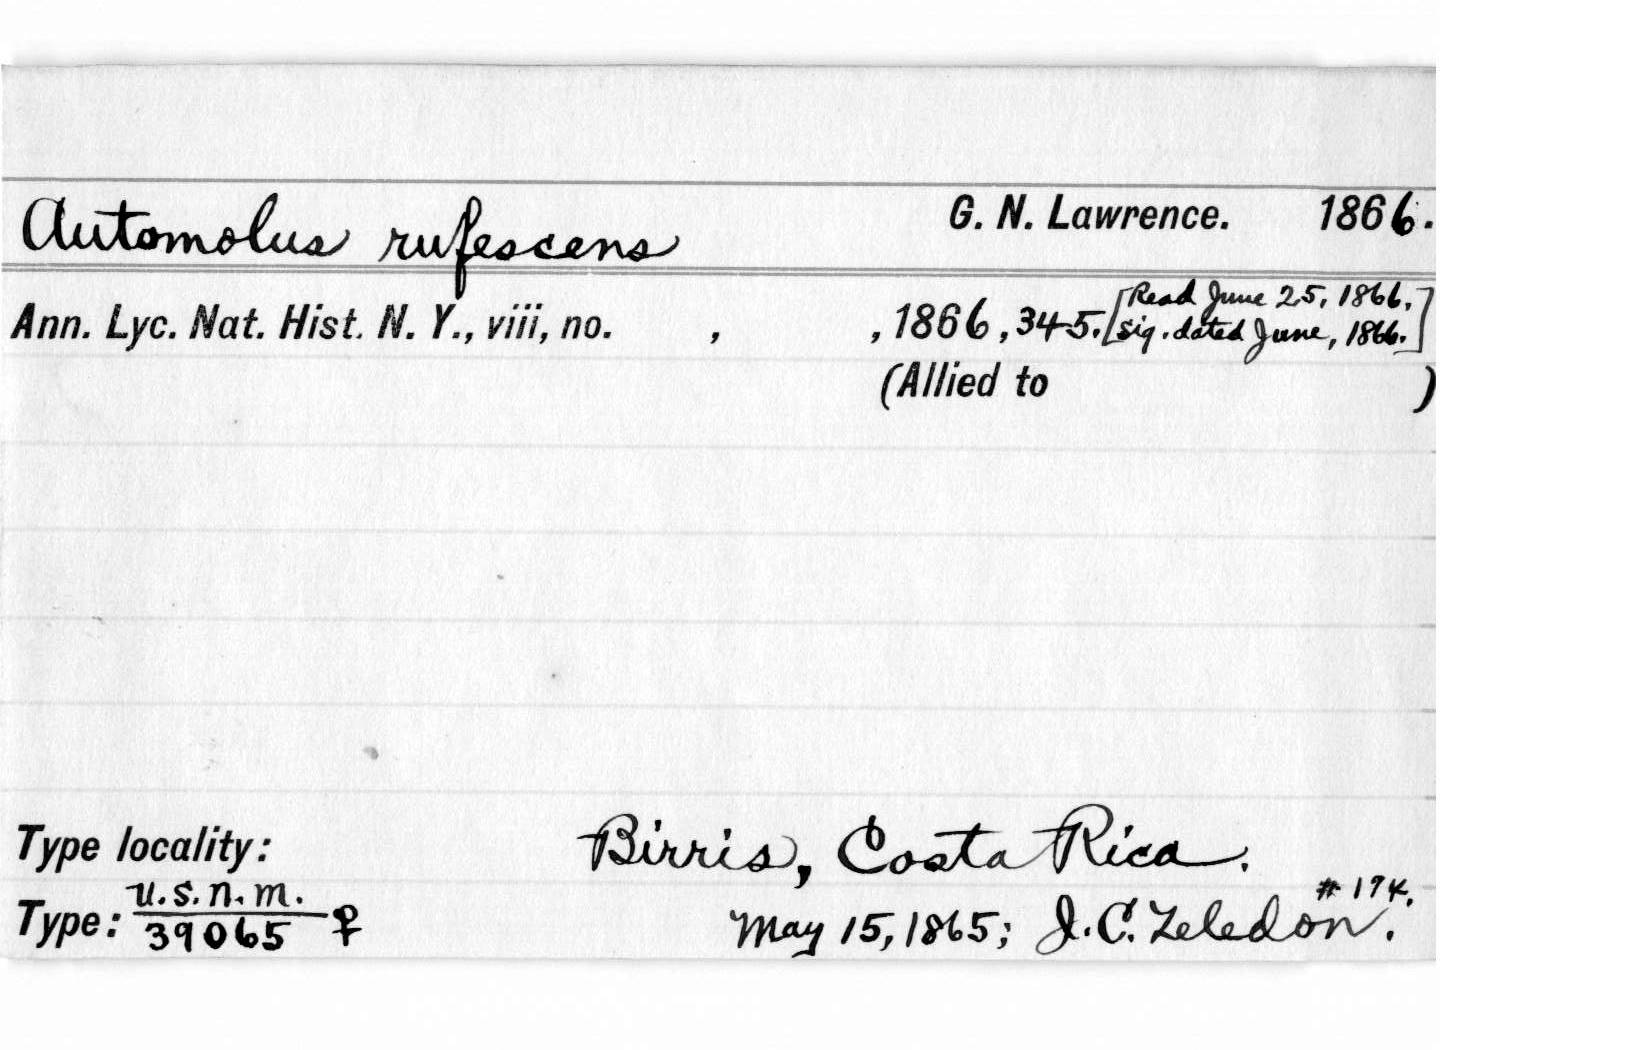 Automolus rufescens G. N. Lawrence. 1866.
Ann. Lyc. Nat. Hist. N. Y., viii, no. , , 1866, 345. [Read June 25, 1866.
sig. dated June, 1866.]
(Allied to )
Type locality: Birris, Costa Rica.
Type: U.S.N.M. # 174.
39065 ♀ May 15, 1865; J. C. Zeledon.